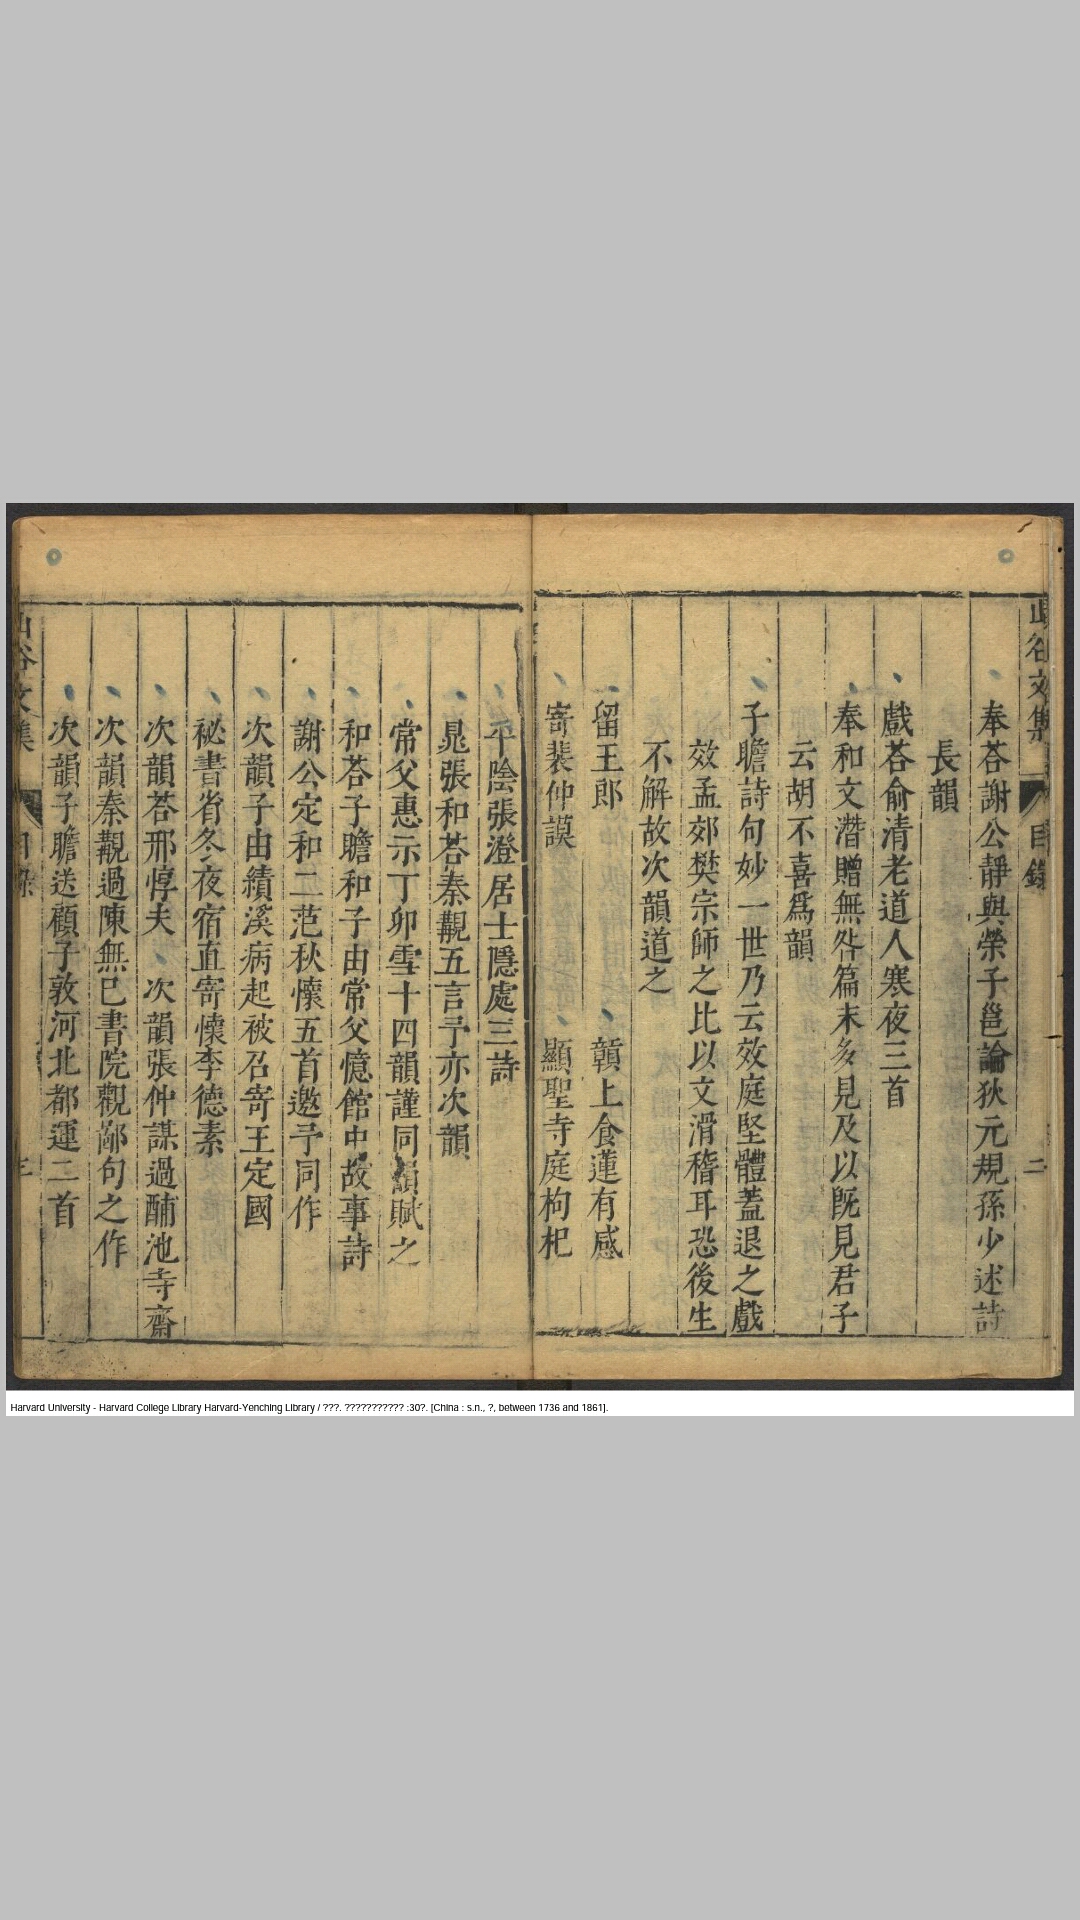 山谷文集 目錄 二
奉荅謝公靜與榮子邕論狄元規孫少述詩
長韻
戲荅俞清老道人寒夜三首
奉和文潛贈無咎篇末多見及以旣見君子
云胡不喜爲韻
子瞻詩句妙一世乃云效庭堅體蓋退之戲
效孟郊樊宗師之比以文滑稽耳恐後生
不解故次韻道之
留王郎 贛上食蓮有感
寄裴仲謨 顯聖寺庭枸杞
平陰張澄居士隱處三詩
晁張和荅秦觀五言予亦次韻
常父惠示丁卯雪十四韻謹同韻賦之
和荅子瞻和子由常父憶館中故事詩
謝公定和二范秋懷五首邀予同作
次韻子由績溪病起被召寄王定國
祕書省冬夜宿直寄懷李德素
次韻荅邢惇夫 次韻張仲謀過酺池寺齋
次韻秦觀過陳無己書院觀鄙句之作
次韻子瞻送顧子敦河北都運二首
山谷文集 目錄 三
Harvard University - Harvard College Library Harvard-Yenching Library / ???. ??????????? :30?. [China : s.n., ?, between 1736 and 1861].